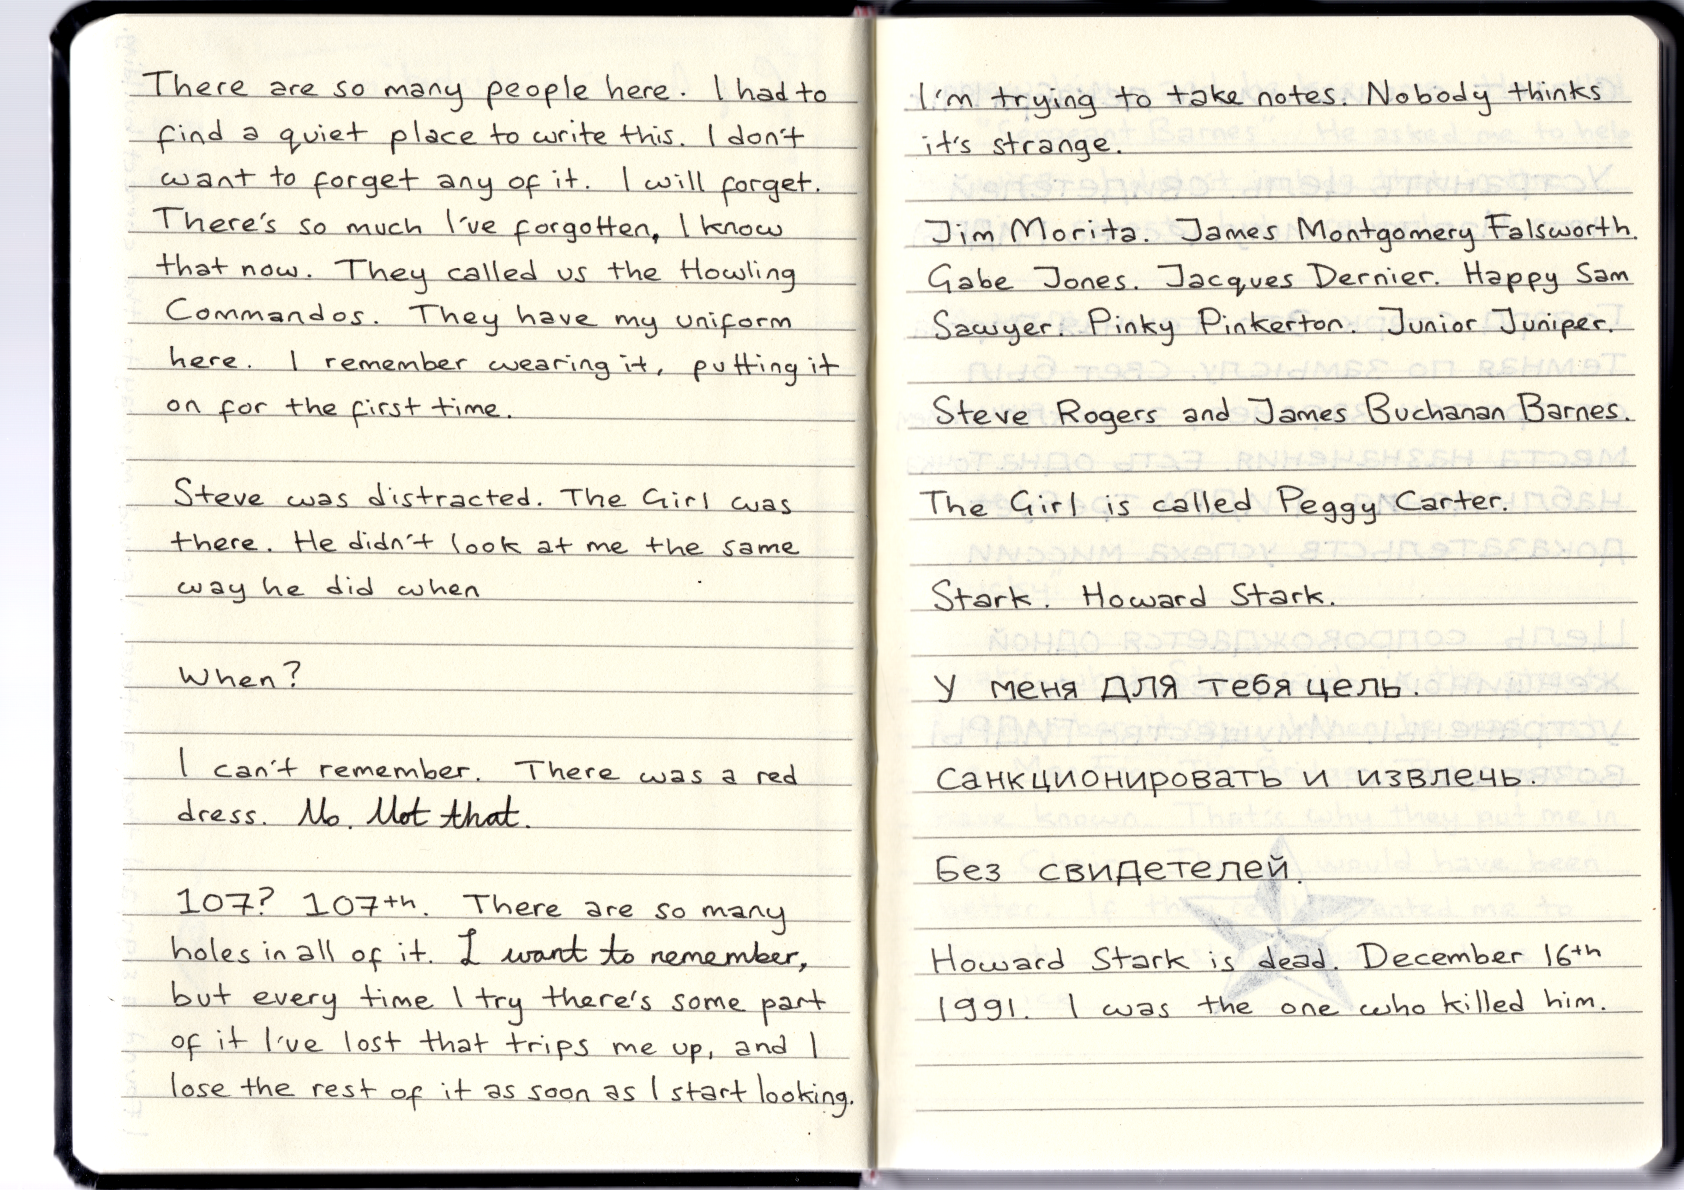 There are so many people here. I had to
find a quiet place to write this. I don't
want to forget any of it. I will forget.
There's so much I've forgotten, I know
that now. They called us the Howling
Commandos. They have my uniform
here. I remember wearing it, putting it
on for the first time.
Steve was distracted. The Girl was
there. He didn't look at me the same
way he did when
When?
I can't remember. There was a red
dress. No. Not that.
107? 107th. There are so many
holes in all of it. I want to remember,
but every time I try there's some part
of it I've lost that trips me up, and I
lose the rest of it as soon as I start looking.
I'm trying to take notes. Nobody thinks
it's strange.
Jim Morita. James Montgomery Falsworth.
Gabe Jones. Jacques Dernier. Happy Sam
Sawyer. Pinky Pinkerton. Junior Juniper.
Steve Rogers and James Buchanan Barnes.
The Girl is called Peggy Carter.
Stark. Howard Stark.
У меня для тебя цель.
Санкционировать и извлечь.
Без свидетелей.
Howard Stark is dead. December 16th
1991. I was the one who killed him.